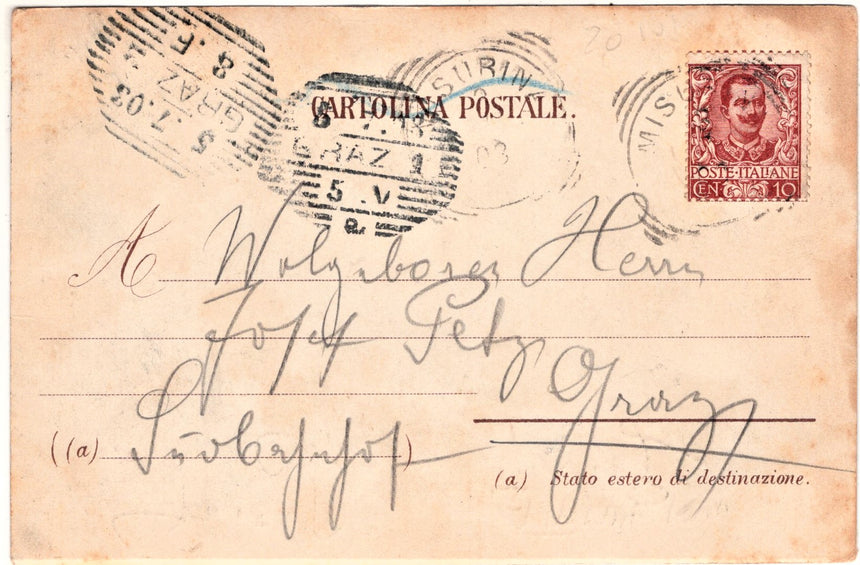 20
5.7.03
GRAZ
8.F
SURIN
03
GRAZ 1
5.V
CARTOLINA POSTALE.
MISU
POSTE·ITALIANE
CEN 10
A Wolgeboren Herrn
Josef Petz
Graz
((a) Südbahnhof )
(a) Stato estero di destinazione.